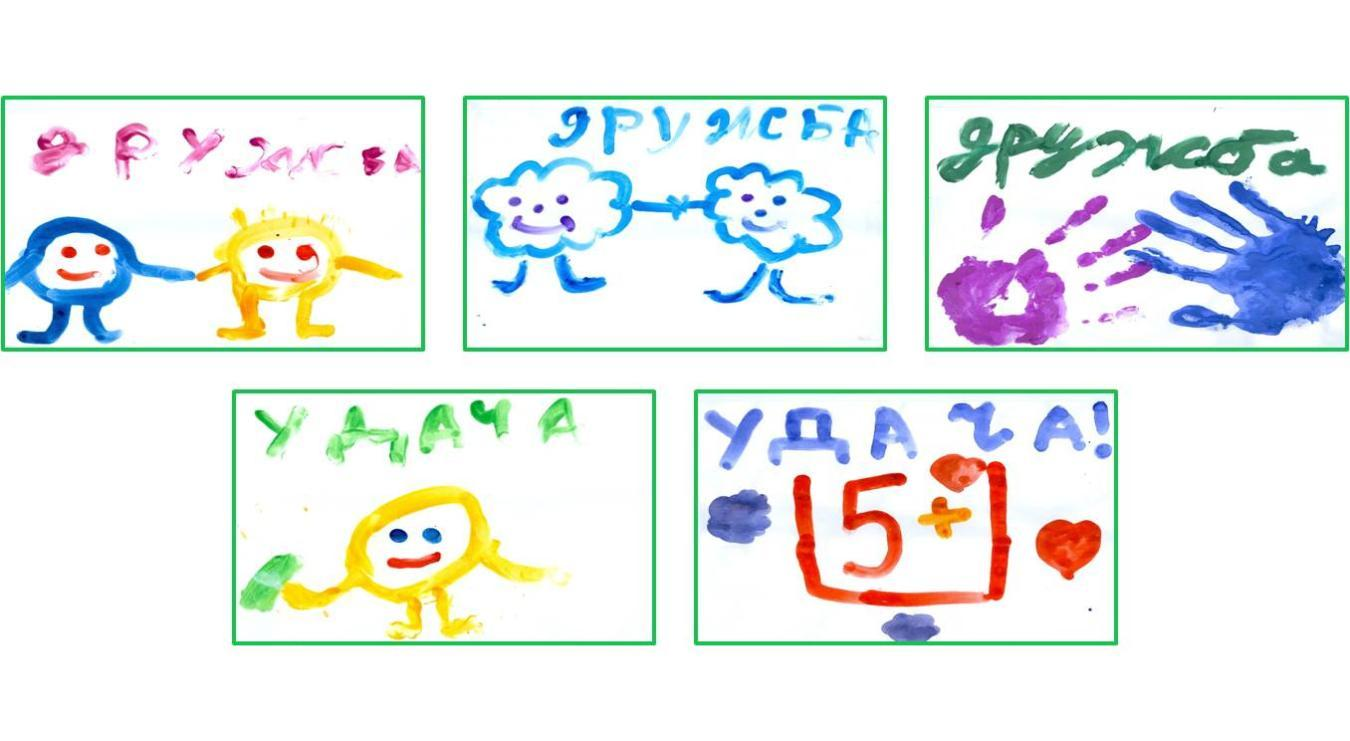 ДРУЖБА
ДРУЖБА
дружба
УДАЧА
УДАЧА!
5+